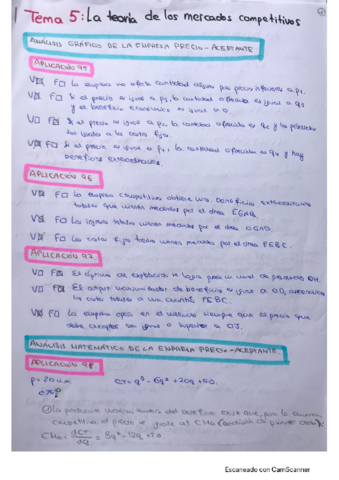 Tema 5: La teoría de los mercados competitivos
ANÁLISIS GRÁFICO DE LA EMPRESA PRECIO-ACEPTANTE
APLICACIÓN 95
V F La empresa no oferta cantidad alguna por precios inferiores a p1.
V F Si el precio es igual a p2, la cantidad ofertada es igual a q2
y el beneficio económico es igual a 0.
V F Si el precio es igual a p2, la cantidad ofertada es q2 y las pérdidas
son iguales a la costa fija.
V F Si el precio es igual a p4, la cantidad ofertada es q4 y hay
beneficios extraordinarios.
APLICACIÓN 96
V F La empresa competitiva obtiene unos beneficios extraordinarios
totales que vienen medidos por el área EGAB.
V F Los ingresos totales vienen medidos por el área OGAD.
V F Los costes fijos totales vienen medidos por el área FEBC.
APLICACIÓN 97
V F El óptimo de explotación se logra para un nivel de producto OH.
V F El output maximizador de beneficio es igual a OD, ascendiendo
los costes totales a una cuantía FEBC.
V F La empresa opera en el mercado siempre que el precio que
debe aceptar sea igual o superior a OJ.
ANÁLISIS MATEMÁTICO DE LA EMPRESA PRECIO-ACEPTANTE
APLICACIÓN 98
p=20 u.m. CT= q³-6q²+20q+50.
El producto maximizador del beneficio exige que, para la empresa
competitiva, el precio se iguale al CMa (condición de primer orden):
CMa= dCT/dq = 3q²-12q+20
Escaneado con CamScanner